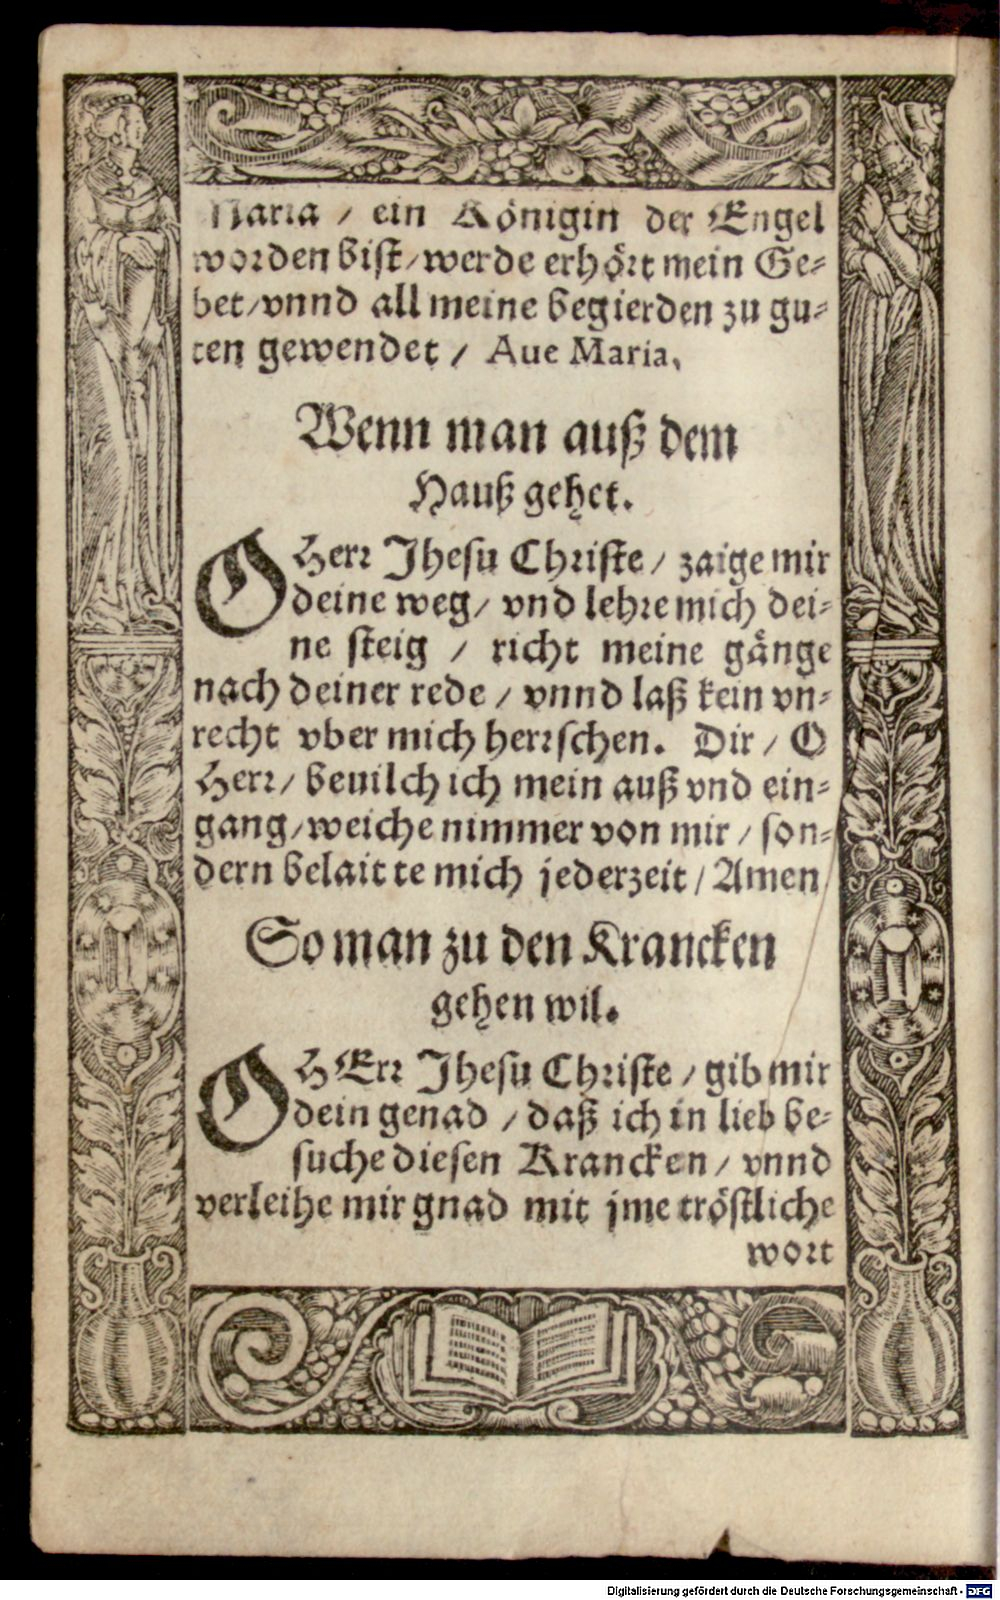 Maria / ein Königin der Engel
worden bist / werde erhört mein Ge-
bet / vnnd all meine begierden zu gu-
ten gewendet / Aue Maria.
Wenn man auß dem
Hauß gehet.
O Herr Jhesu Christe / zaige mir
deine weg / vnd lehre mich dei-
ne steig / richt meine gänge
nach deiner rede / vnnd laß kein vn-
recht vber mich herrschen. Dir / O
Herr / beuilch ich mein auß vnd ein-
gang / weiche nimmer von mir / son-
dern belaitte mich jederzeit / Amen
So man zu den Krancken
gehen wil.
O HErr Jhesu Christe / gib mir
dein genad / daß ich in lieb be-
suche diesen Krancken / vnnd
verleihe mir gnad mit jme tröstliche
wort
Digitalisierung gefördert durch die Deutsche Forschungsgemeinschaft - DFG